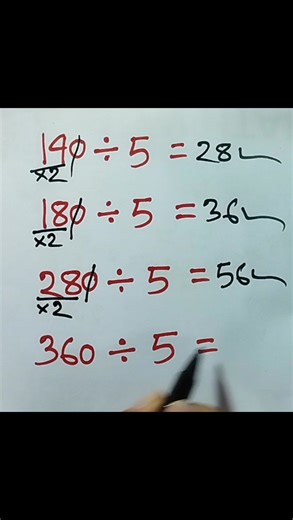 140 ÷ 5 = 28
×2
180 ÷ 5 = 36
×2
280 ÷ 5 = 56
×2
360 ÷ 5 =